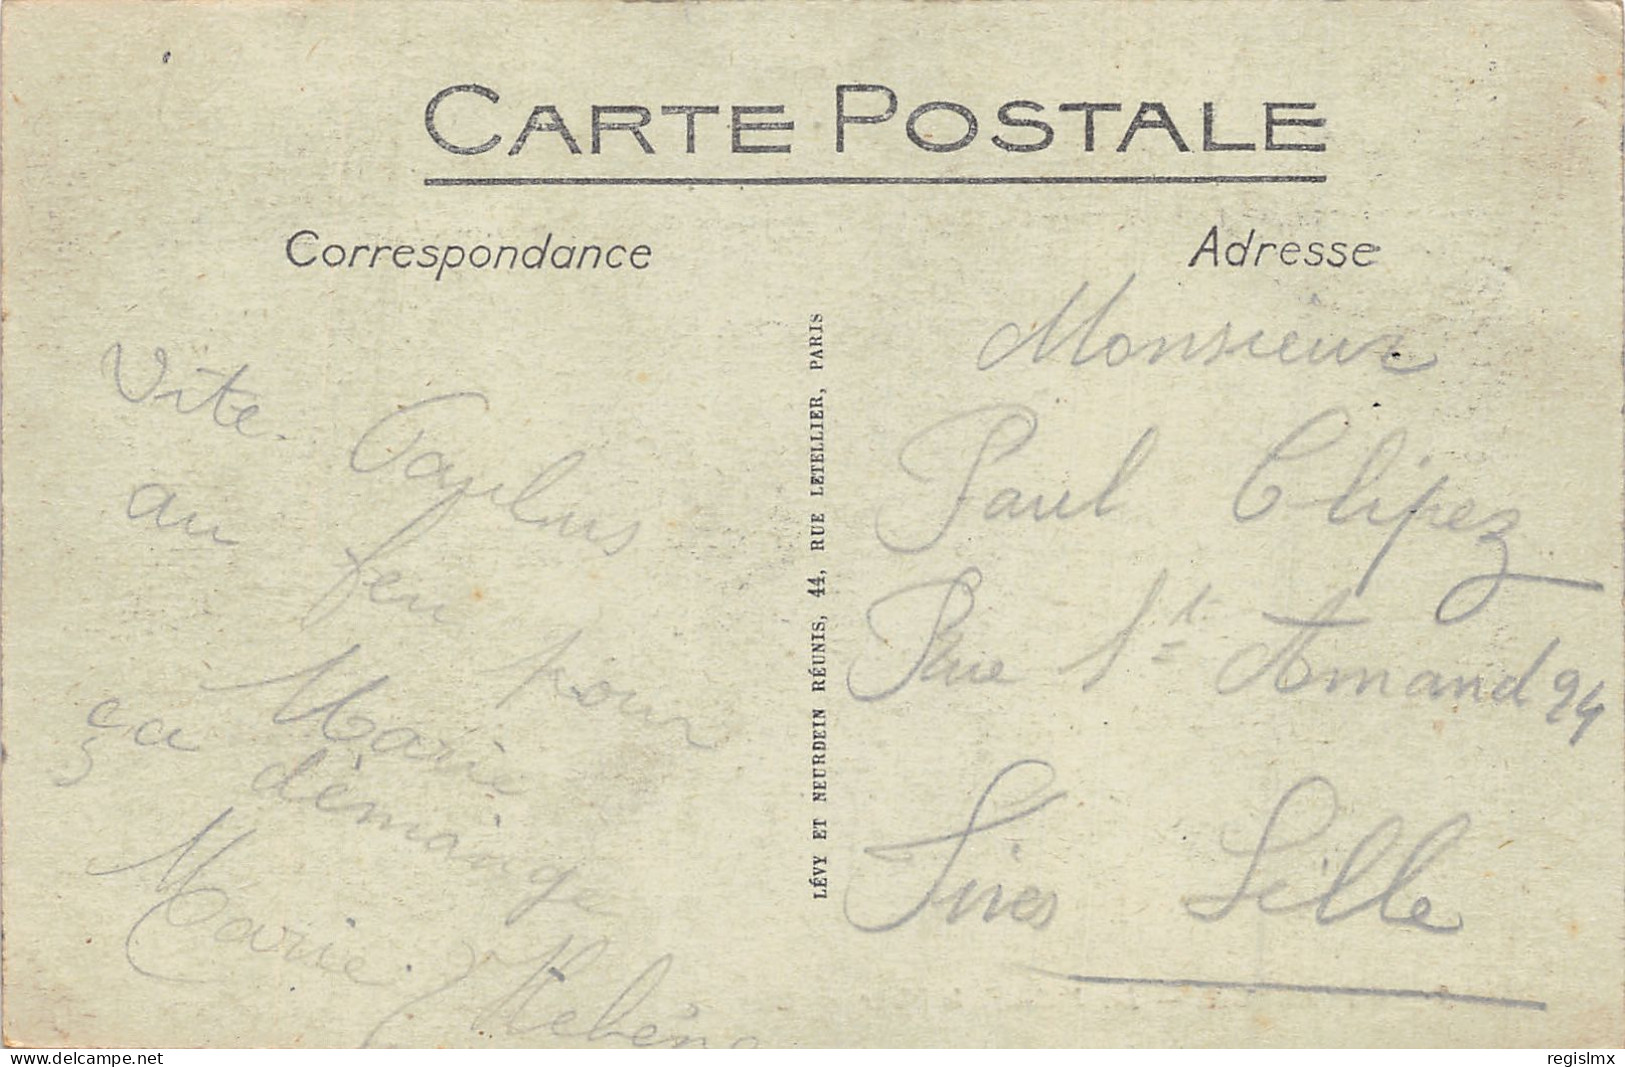 CARTE POSTALE
Correspondance
Adresse
Vite Paulus
au feu pour
Marie
ça démange
Marie. Hélène
LÉVY ET NEURDEIN RÉUNIS, 44, RUE LETELLIER, PARIS
Monsieur
Paul Clipez
Rue St Amand 94
Fives Lille
delcampe.net
regislmx